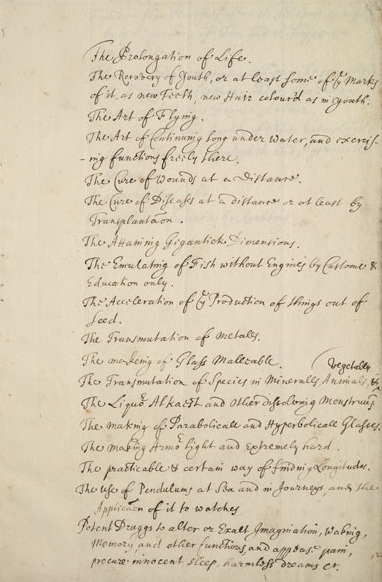 The Prolongation of Life.
The Recovery of Youth, or at least some of ye Marks
of it, as new Teeth, new Hair colour'd as in youth.
The Art of Flying.
The Art of Continuing long under water, and exercis-
-ing functions freely there.
The Cure of Wounds at a Distance.
The Cure of Diseases at a distance or at least by
Transplantation.
The Attaining Gigantick Dimensions.
The Emulating of Fish without Engines by Custome &
Education only.
The Acceleration of ye Production of things out of
Seed.
The Transmutation of Metalls.
The makeing of Glass Malleable.
Vegetables
The Transmutation of Species in Mineralls, Animals, &
The Liquid Alkaest and Other dissolving Menstruums
The making of Parabolicall and Hyperbolicall Glasses.
The making Armor light and extremely hard.
The practicable & certain way of finding Longitudes.
The use of Pendulums at Sea and in Journeys, and the
Application of it to watches
Potent Druggs to alter or Exalt Imagination, Waking,
Memory, and other functions, and appease pain,
procure innocent sleep, harmless dreams etc.